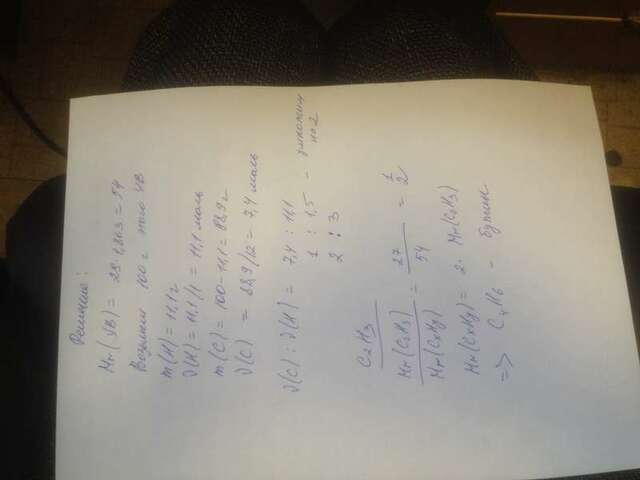 Решение:
Mr(УВ) = 29·1,863 = 54
Возьмем 100 г этого УВ
m(H) = 11,1 г
ν(H) = 11,1/1 = 11,1 моль
m(C) = 100 - 11,1 = 88,9 г
ν(C) = 88,9/12 = 7,4 моль
ν(C) : ν(H) = 7,4 : 11,1
1 : 1,5 - умножим на 2
2 : 3
C2H3
Mr(C2H3)/Mr(CxHy) = 27/54 = 1/2
Mr(CxHy) = 2· Mr(C2H3)
=> C4H6 - бутин